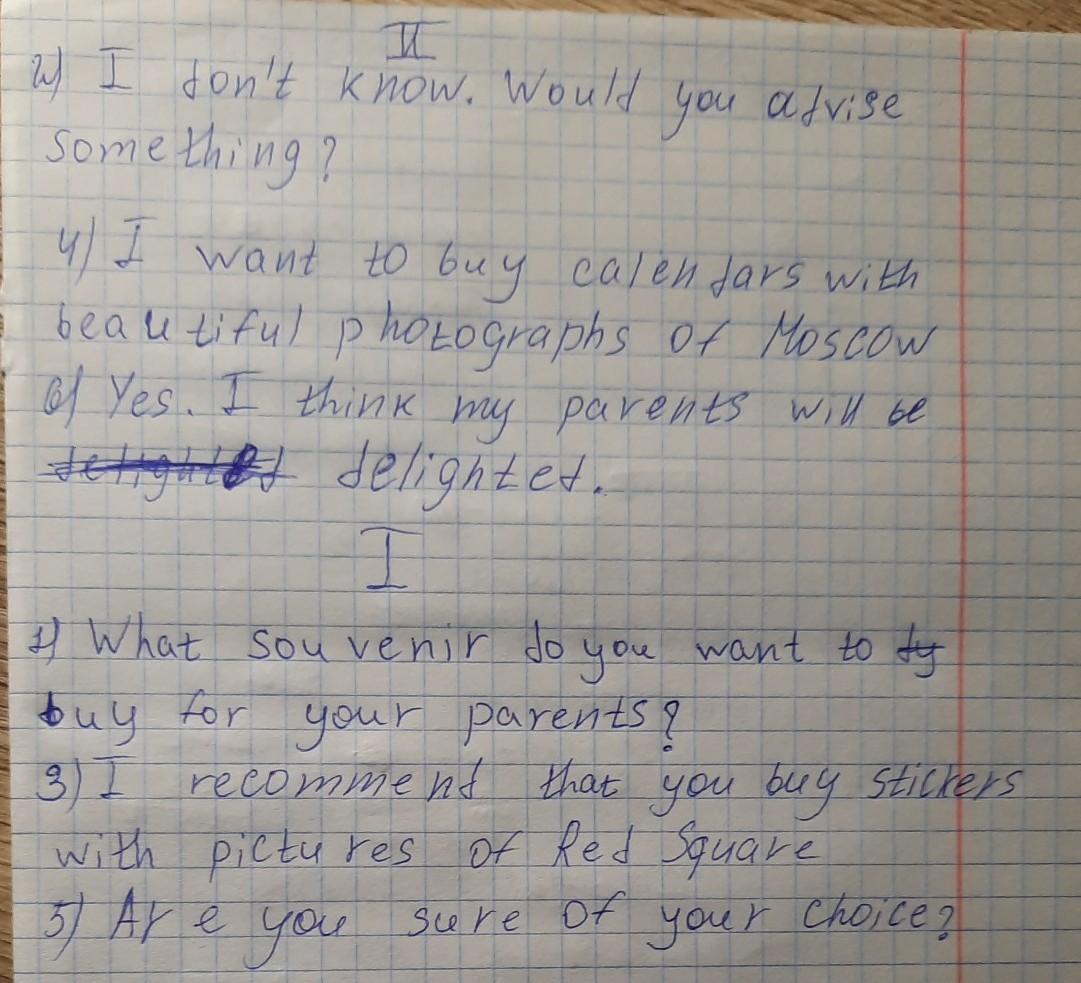 II
2) I don't know. Would you advise
something?
4) I want to buy calendars with
beautiful photographs of Moscow
6) Yes. I think my parents will be
delighted delighted.
I
1) What souvenir do you want to
buy for your parents?
3) I recommend that you buy stickers
with pictures of Red Square
5) Are you sure of your choice?